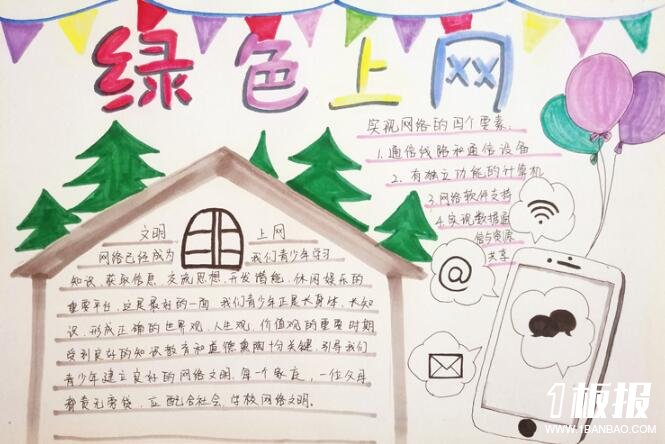 绿色上网
实现网络的四个要素:
1.通信线路和通信设备
2.有独立功能的计算机
3.网络软件支持
4.实现数据通
信与资源
共享
文明 上网
网络已经成为 我们青少年学习
知识,获取信息,交流思想,开发潜能,休闲娱乐的
重要平台,这是最好的一面,我们青少年正是长身体,长知
识,形成正确的世界观,人生观,价值观的重要时期
受到良好的知识教育和道德熏陶十分关键,引导我们
青少年建立良好的网络文明,每一个家庭,一位父母
责无旁贷,应配合社会,学校网络文明。
@
1板报
WWW.1BANBAO.COM